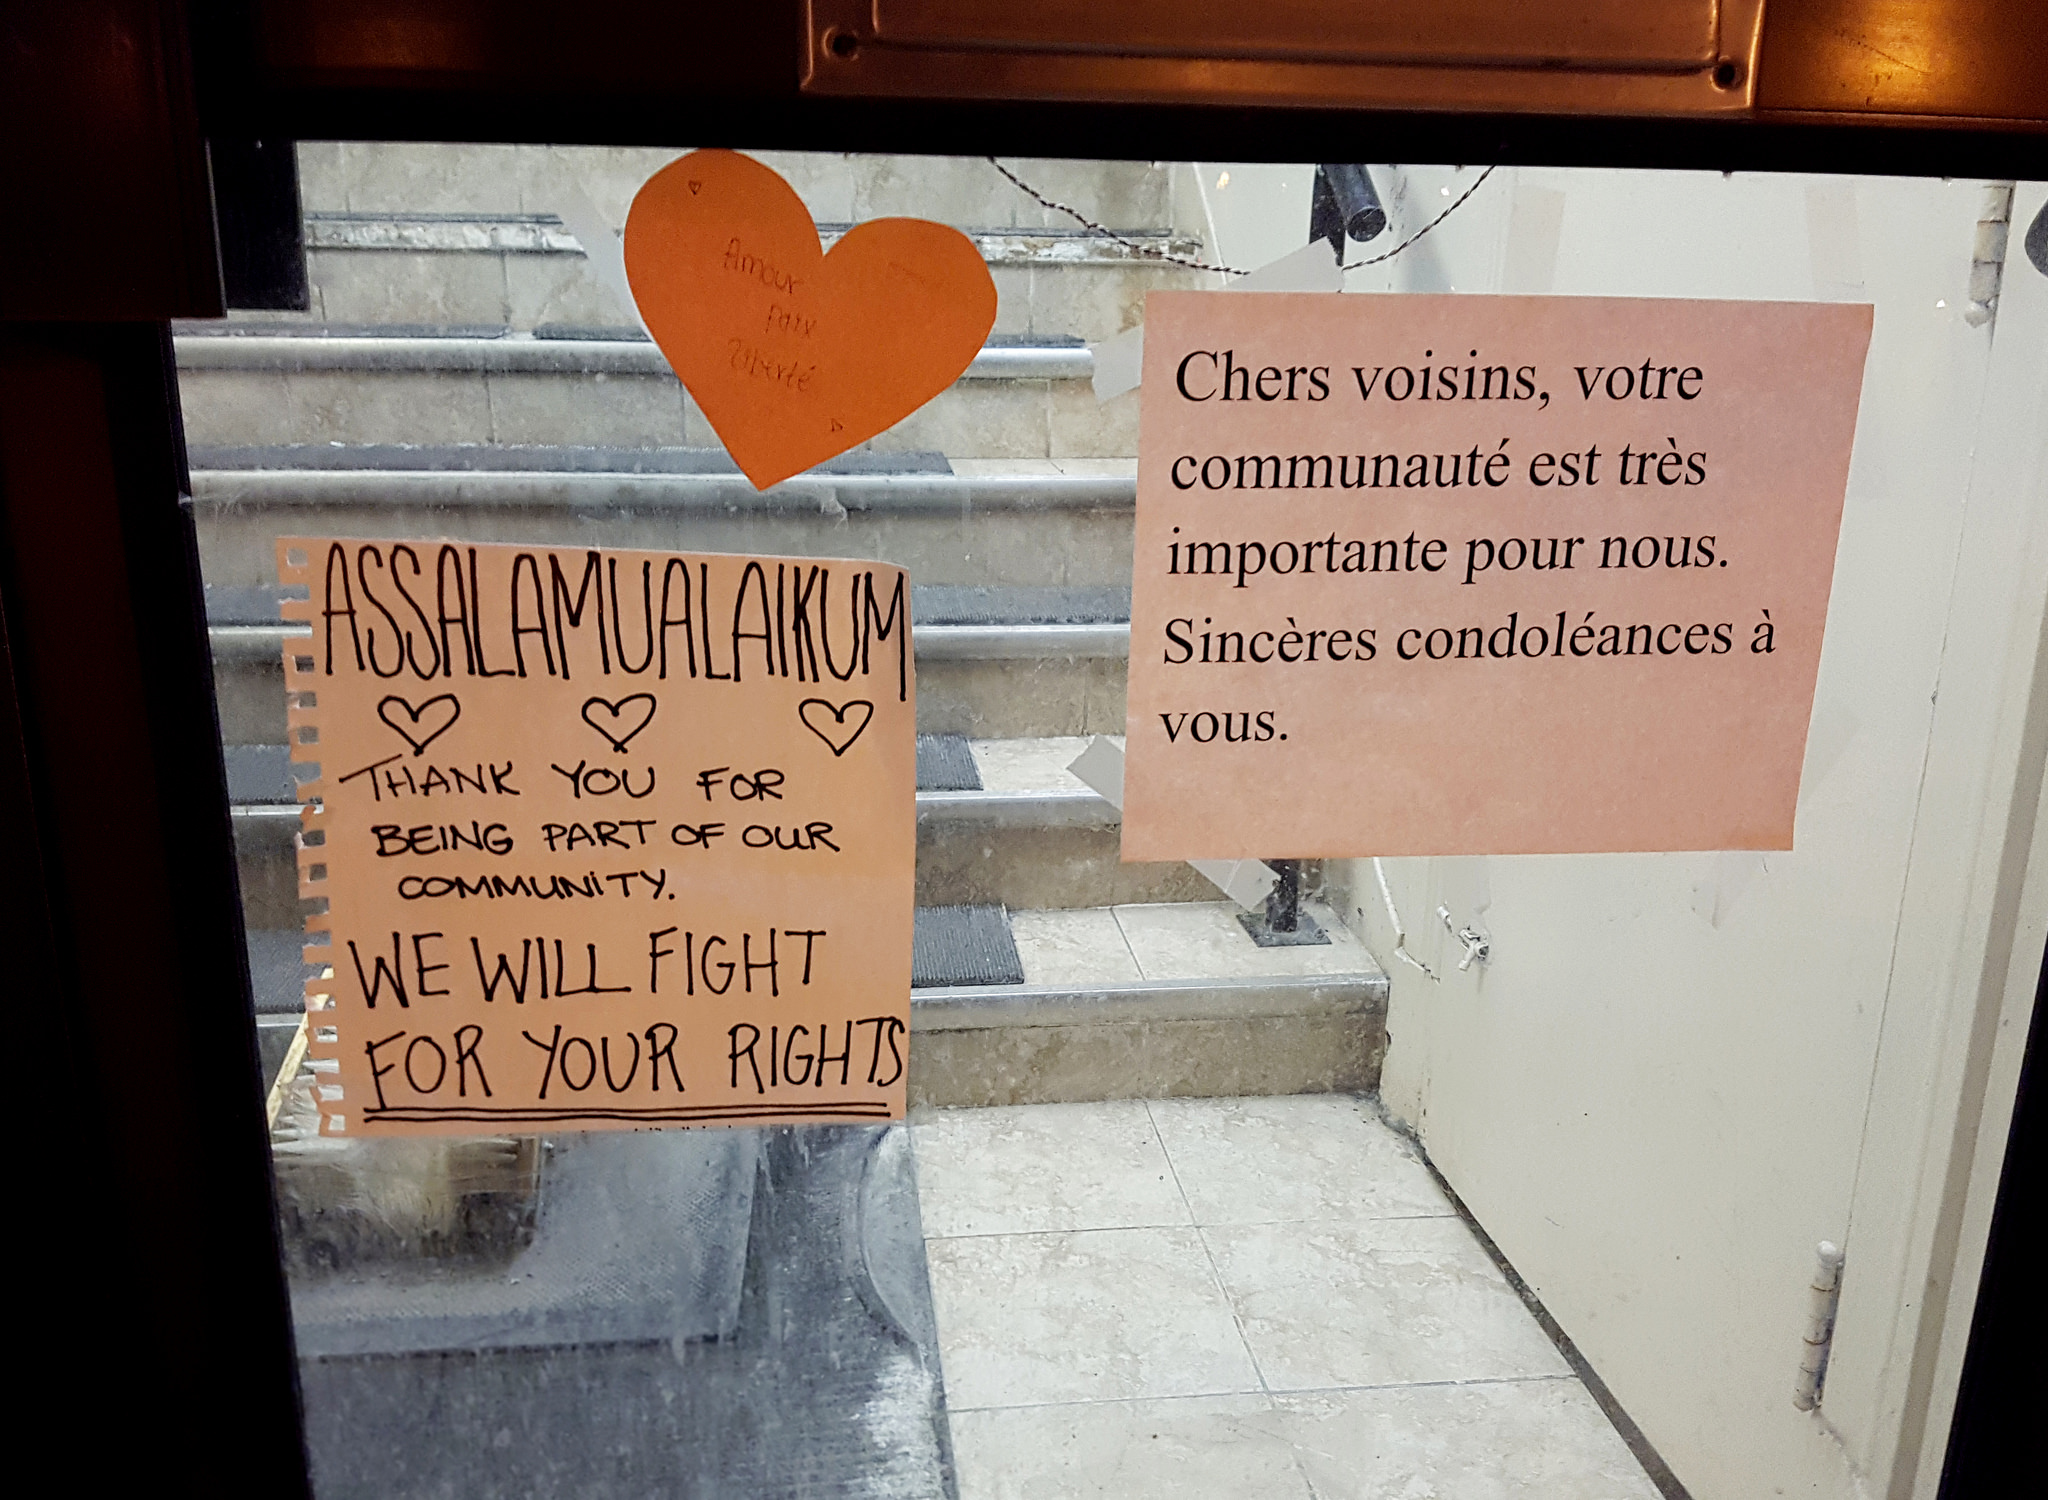 Amour
Paix
Liberté
ASSALAMUALAIKUM
THANK YOU FOR
BEING PART OF OUR
COMMUNITY.
WE WILL FIGHT
FOR YOUR RIGHTS
Chers voisins, votre
communauté est très
importante pour nous.
Sincères condoléances à
vous.